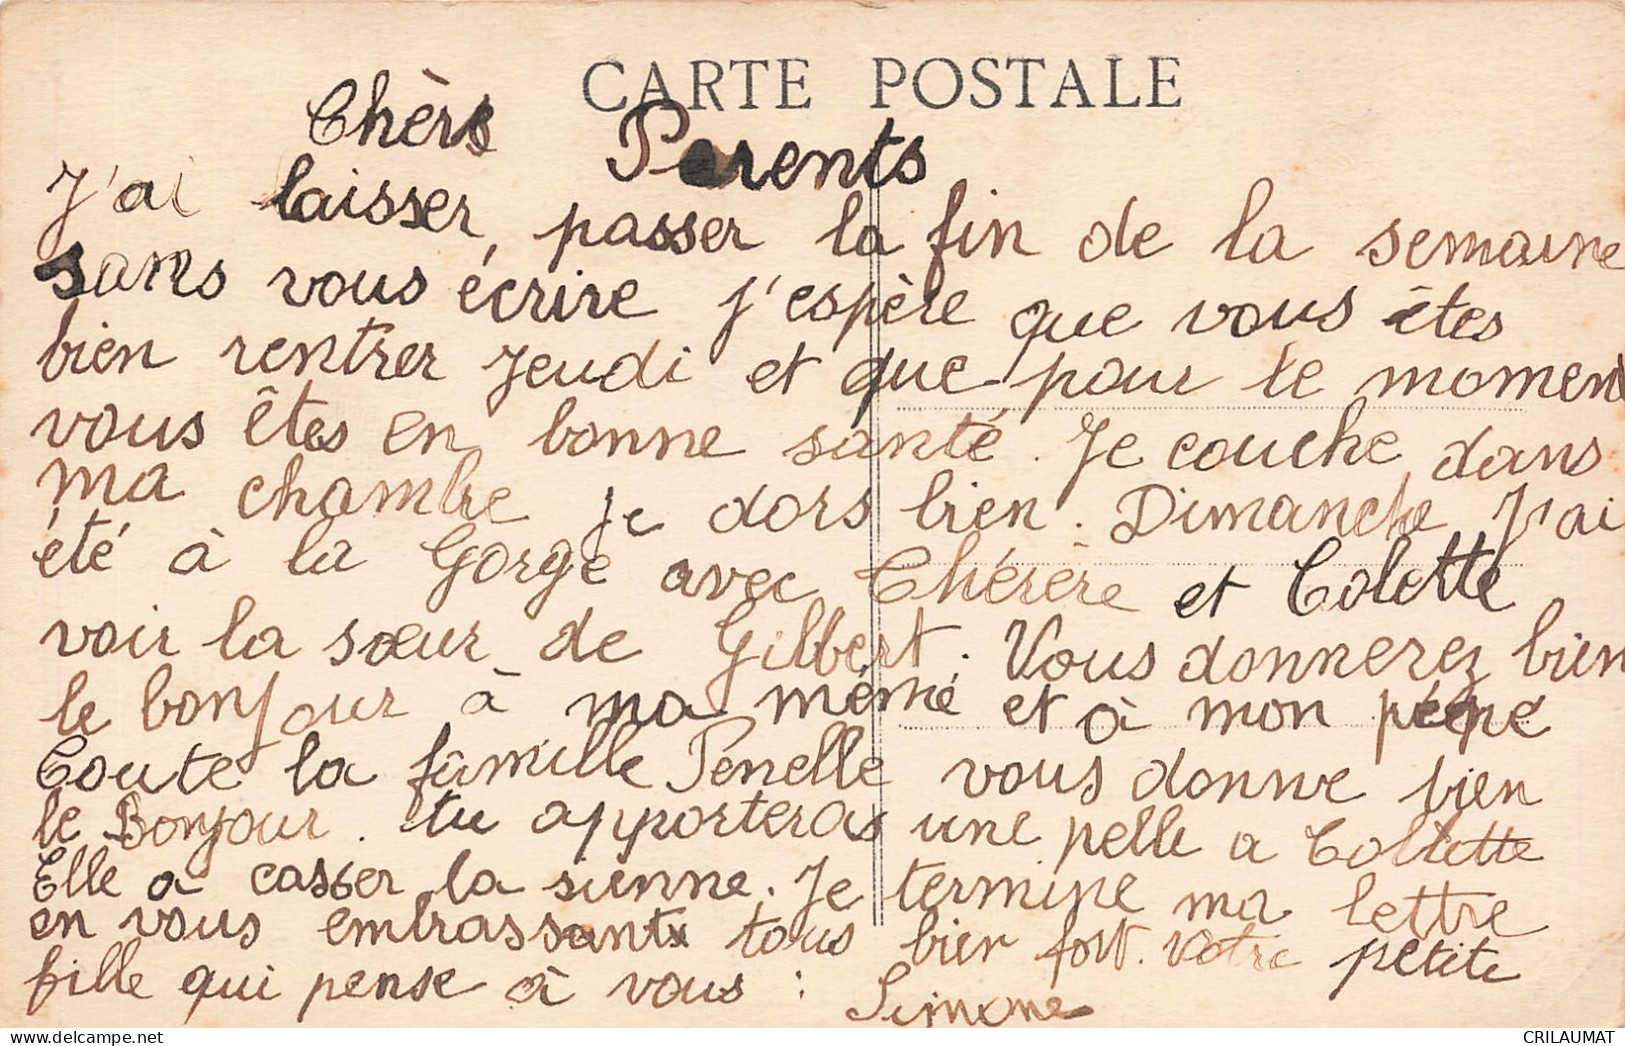 CARTE POSTALE
Chèrs Parents
J'ai laisser passer la fin de la semaine
sans vous écrire J'espère que vous êtes
bien rentrer Jeudi et que pour le moment
vous êtes en bonne santé. Je couche dans
ma chambre je dors bien. Dimanche J'ai
été à la Gorge avec Chérère et Colette
voir la sœur de Gilbert. Vous donnerez bien
le bonjour à ma mémé et à mon pépé
Toute la famille Penelle vous donne bien
le Bonjour. tu apporteras une pelle a Collette
Elle a casser la sienne. Je termine ma lettre
en vous embrassant tous bien fort. Votre petite
fille qui pense à vous : Simone
delcampe.net
CRILAUMAT